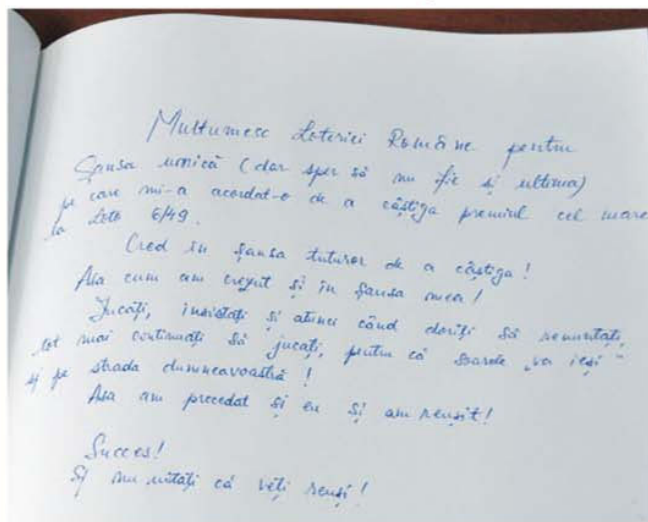 Multumesc Loteriei Române pentru
șansa unică (dar sper să nu fie și ultima)
pe care mi-a acordat-o de a câștiga premiul cel mare
la Loto 6/49.
Cred în șansa tuturor de a câștiga!
Asa cum am crezut și în șansa mea!
Jucați, insistați și atunci când doriți să renunțați,
tot mai continuați să jucați, pentru că soarele „va ieși"
și pe strada dumneavoastră!
Asa am procedat și eu și am reușit!
Succes!
Și nu uitați că veți reuși!